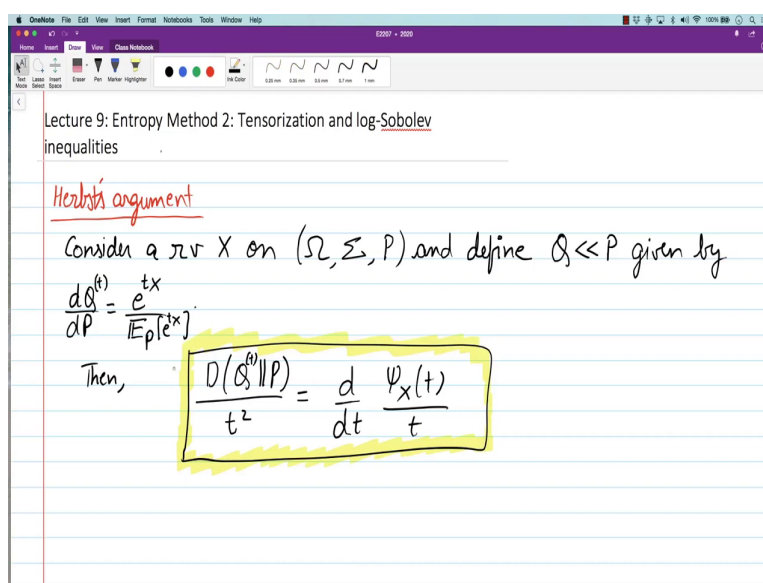 OneNote File Edit View Insert Format Notebooks Tools Window Help 100%
E2207 - 2020
Home Insert Draw View Class Notebook
Text Mode Lasso Select Insert Space Eraser Pen Marker Highlighter Ink Color 0.25 mm 0.35 mm 0.5 mm 0.7 mm 1 mm
Lecture 9: Entropy Method 2: Tensorization and log-Sobolev
inequalities
Herbst's argument
Consider a rv X on (Ω, Σ, P) and define Q << P given by
dQ^(t)/dP = e^{tX}/E_P[e^{tX}].
Then, D(Q^(t)||P)/t² = d/dt ψ_X(t)/t